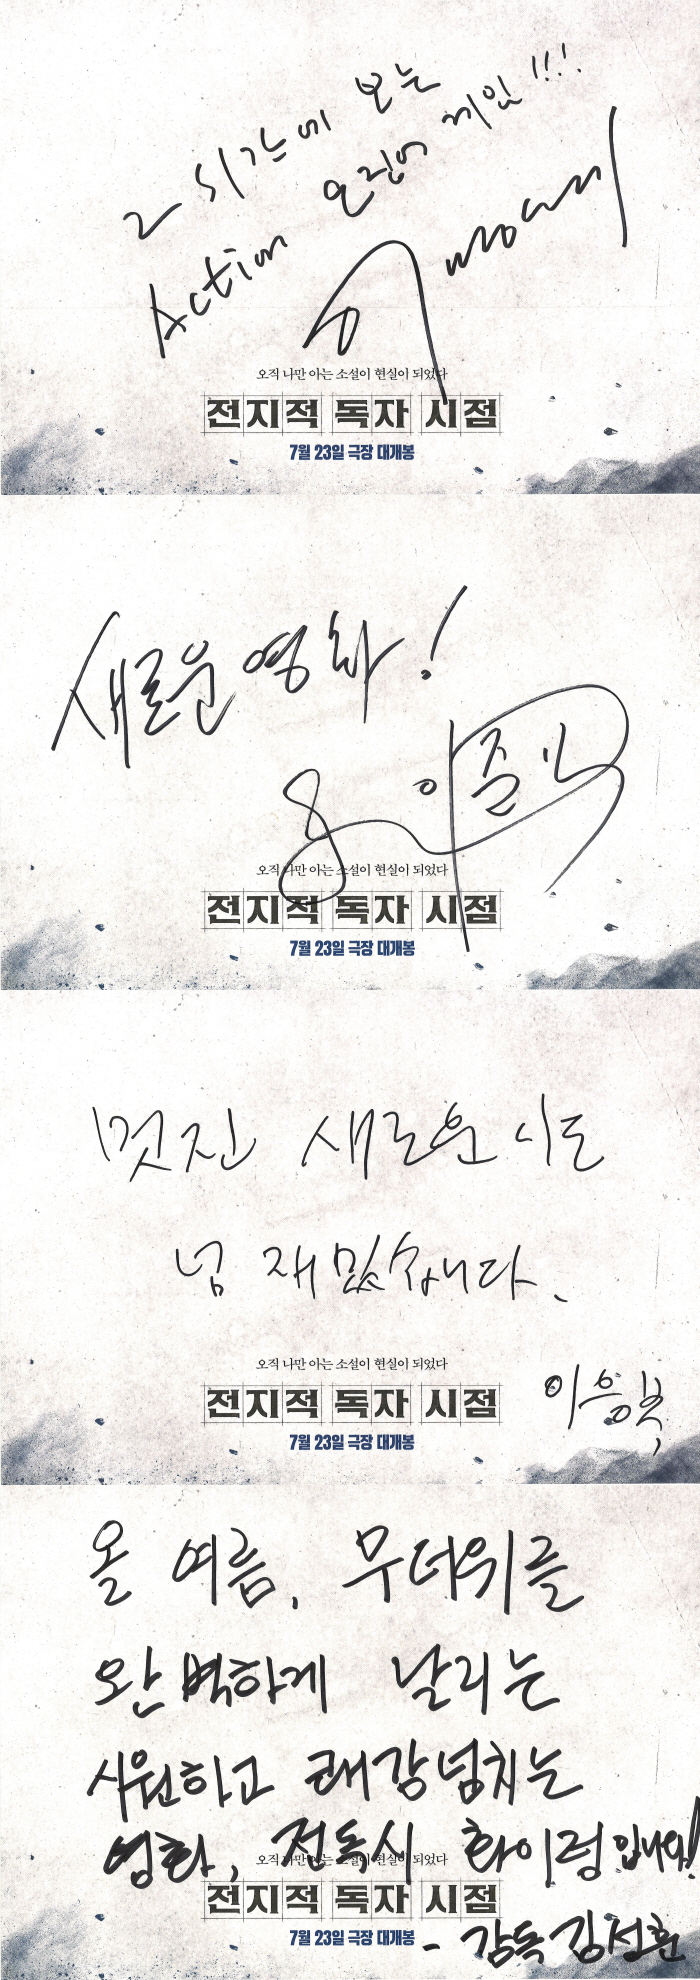 2시간에 보는
Action 오징어 게임!!!
오직 나만 아는 소설이 현실이 되었다
전지적 독자 시점
7월 23일 극장 대개봉
새로운 영화!
이준익
오직 나만 아는 소설이 현실이 되었다
전지적 독자 시점
7월 23일 극장 대개봉
멋진 새로운 시도
넘 재밌습니다.
오직 나만 아는 소설이 현실이 되었다
이응복
전지적 독자 시점
7월 23일 극장 대개봉
올 여름, 무더위를
완벽하게 날리는
시원하고 쾌감넘치는
영화, 전독시 화이팅입니다!
오직 나만 아는 소설이 현실이 되었다
전지적 독자 시점
7월 23일 극장 대개봉
- 감독 김선환